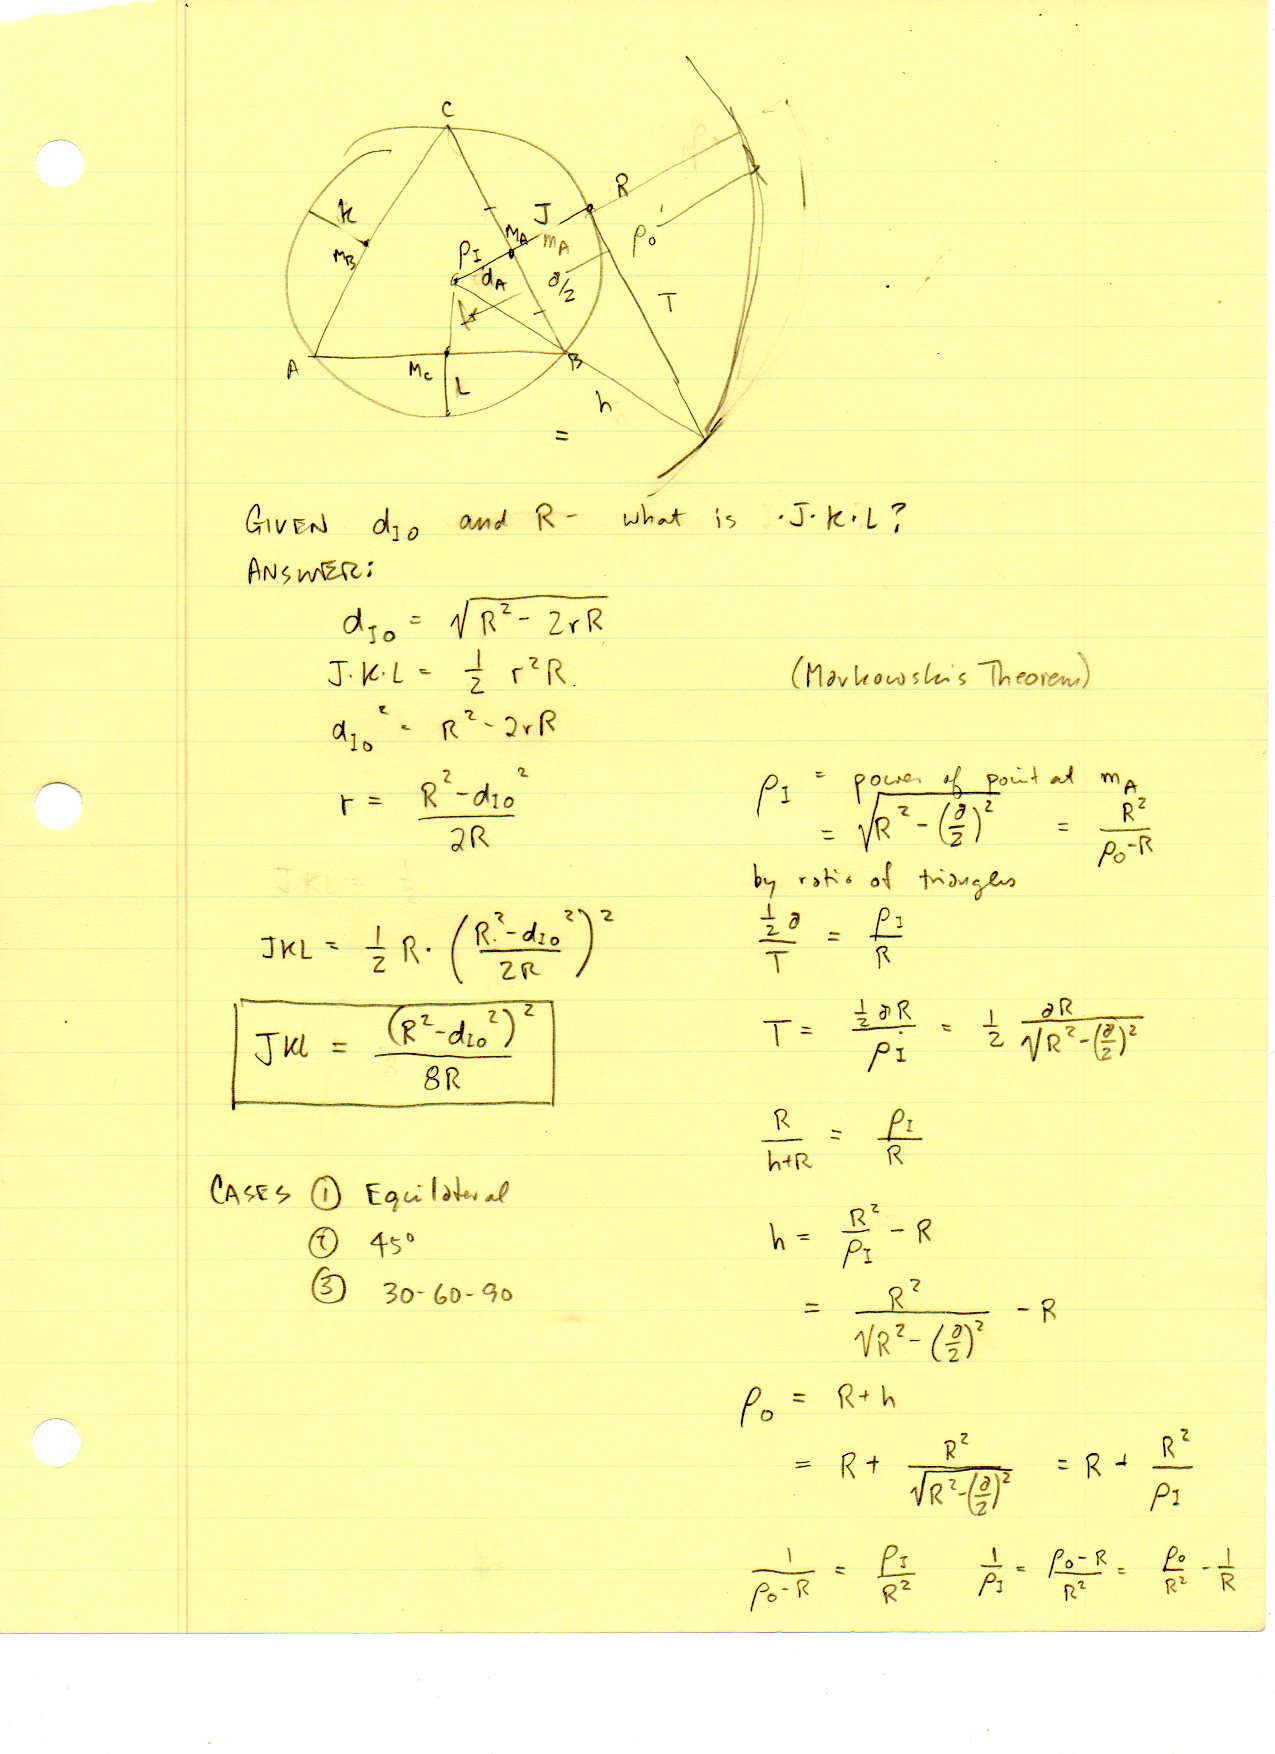 C
K
J
R
M_B
M_A
m_A
ρ_I
d_A
∂/2
ρ_0'
T
A
M_C
L
B
h
=
GIVEN d_IO and R - what is ·J·K·L?
ANSWER:
d_IO = √(R² - 2rR)
J·K·L = 1/2 r²R.
(Markowski's Theorem)
d_IO² = R² - 2rR
r = (R² - d_IO²)/2R
JKL = 1/2 R · ((R² - d_IO²)/2R)²
JKL = (R² - d_IO²)²/8R
CASES ① Equilateral
② 45°
③ 30-60-90
ρ_I = power of point at m_A
= √(R² - (∂/2)²) = R²/(ρ_0 - R)
by ratio of triangles
(1/2 ∂)/T = ρ_I/R
T = (1/2 ∂R)/ρ_I = 1/2 ∂R/√(R² - (∂/2)²)
R/(h+R) = ρ_I/R
h = R²/ρ_I - R
= R²/√(R² - (∂/2)²) - R
ρ_0 = R + h
= R + R²/√(R² - (∂/2)²) = R + R²/ρ_I
1/(ρ_0 - R) = ρ_I/R² 1/ρ_I = (ρ_0 - R)/R² = ρ_0/R² - 1/R